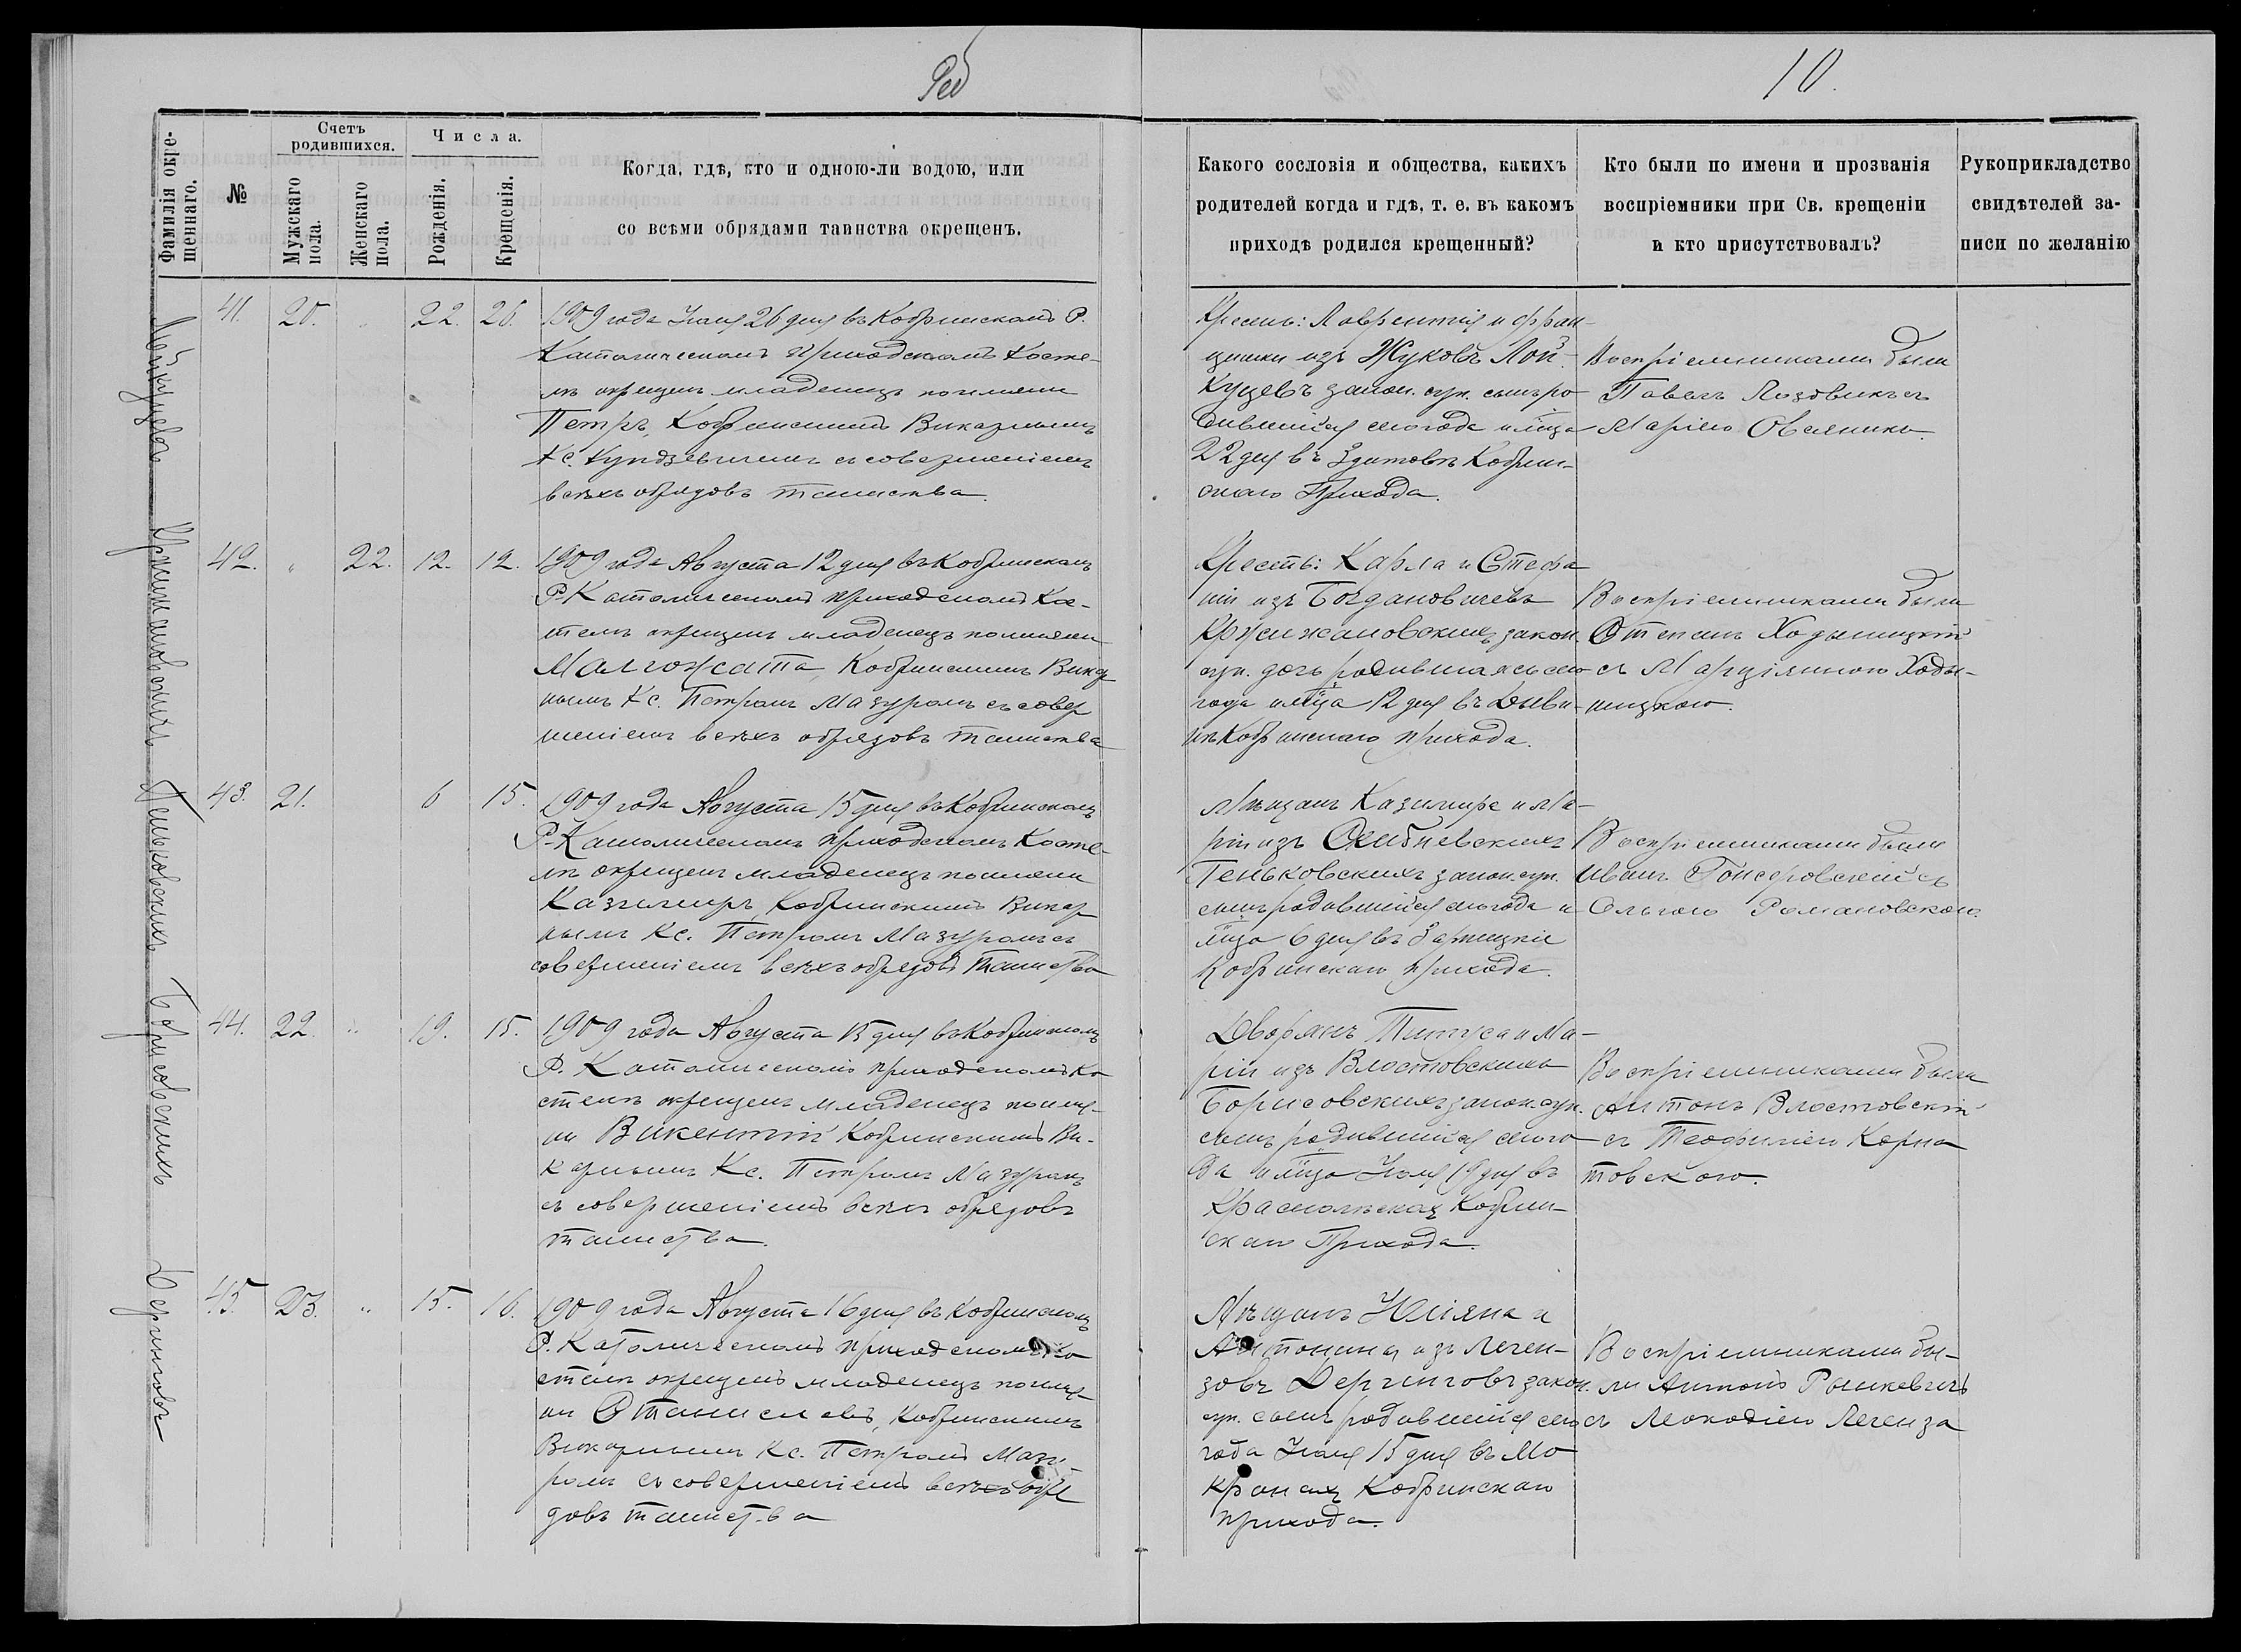 10.
Фамилія окре-
щеннаго.
№
Счетъ
родившихся.
Мужскаго
пола.
Женскаго
пола.
Числа.
Рожденія.
Крещенія.
Когда, гдѣ, кто и одною-ли водою, или
со всѣми обрядами таинства окрещенъ.
Какого сословія и общества, какихъ
родителей когда и гдѣ, т. е. въ какомъ
приходѣ родился крещенный?
Кто были по имени и прозванія
воспріемники при Св. крещеніи
и кто присутствовалъ?
Рукоприкладство
свидѣтелей за-
писи по желанію
41. 20. 22. 26.
1909 года 26 дня въ Кобринскомъ Р.
Католическомъ приходскомъ Косте-
лѣ окрещенъ младенецъ по имени
Петръ, Кобринскимъ Викарнымъ
Кс. съ совершеніемъ
всѣхъ обрядовъ таинства.
Крестьн: Лаврентія и Фран-
цишки изъ Жуковъ Лой-
куцевъ закон. суп. сынъ ро
дившійся сего года и м̃ца
22 дня въ Здитовѣ Кобрин-
скаго Прихода.
Воспріемниками были
Павелъ Лозовикъ съ
Маріею
Лойкуцевъ
42. " 22. 12. 12.
1909 года Августа 12 дня въ Кобринскомъ
Р-Католическомъ приходскомъ Ко-
стелѣ окрещенъ младенецъ по имени
Малгожата, Кобринскимъ Викар
нымъ Кс. Петромъ Мазуромъ съ совер
шеніемъ всѣхъ обрядовъ таинства
Крестьн: Карла и Стефа
ніи изъ Богдановичевъ
Кржижановскихъ закон.
суп. дочь родившаясь сего
года и м̃ца 12 дня въ Дыви-
нѣ Кобринскаго прихода.
Воспріемниками были
Степанъ Ходыницкій
съ Марціянною Ходы-
ницкою.
Кржижановскихъ
43. 21. 6 15.
1909 года Августа 15 дня въ Кобринскомъ
Р-Католическомъ приходскомъ Косте-
лѣ окрещенъ младенецъ по имени
Казимиръ, Кобринскимъ Викар
нымъ Кс. Петромъ Мазуромъ съ
совершеніемъ всѣхъ обрядовъ таинства
Мѣщанъ Казимира и Ма-
ріи изъ
Геньковскихъ закон. суп.
сынъ родившійся сего года и
м̃ца 6 дня въ
Кобринскаго прихода.
Воспріемниками были
Иванъ съ
Ольгою Романовскою.
Геньковскихъ
44. 22. " 19. 15.
1909 года Августа 15 дня въ Кобринскомъ
Р. Католическомъ приходскомъ Ко
стелѣ окрещенъ младенецъ по име-
ни Викентій Кобринскимъ Ви-
карнымъ Кс. Петромъ Мазуромъ
съ совершеніемъ всѣхъ обрядовъ
таинства.
Дворянъ Титуса и Ма-
ріи изъ Властовскихъ
Борисовскихъ закон. суп.
сынъ родившійся сего го
да м̃ца 19 дня въ
Кобрин-
скаго Прихода.
Воспріемниками были
Антонъ Властовскій
съ Теофиліею Корна
товскою.
Борисовскихъ
45. 23. " 15. 16.
1909 года Августа 16 дня въ Кобринскомъ
Р. Католическомъ приходскомъ Ко
стелѣ окрещенъ младенецъ по име
ни Станиславъ, Кобринскимъ
Викарнымъ Кс. Петромъ Мазу-
ромъ съ совершеніемъ всѣхъ обря
довъ таинства
Мѣщанъ Юліяна и
Антонины изъ Леген-
зовъ Дерчинговъ закон.
суп. сынъ родившійся сего
года 15 дня въ Мо
кранахъ Кобринскаго
прихода.
Воспріемниками бы-
ли Антонъ
съ Леокадіею Легенза